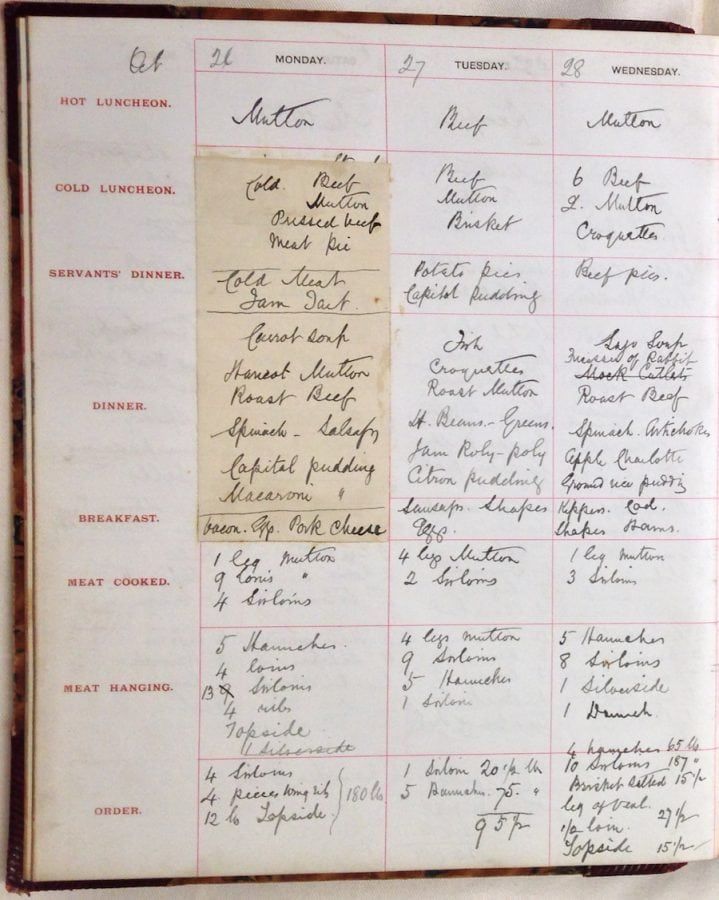 Oct 26 MONDAY. 27 TUESDAY. 28 WEDNESDAY.
HOT LUNCHEON.
Mutton
Beef
Mutton
COLD LUNCHEON.
Cold. Beef
Mutton
Pressed beef
Meat pie
Beef
Mutton
Brisket
6 Beef
2. Mutton
Croquettes
SERVANTS' DINNER.
Cold Meat
Jam Tart.
Potato pies
Capital pudding
Beef pies.
DINNER.
Carrot soup
Haricot Mutton
Roast Beef
Spinach - Salsafy
Capital pudding
Macaroni "
Fish
Croquettes
Roast Mutton
H. Beans. - Greens.
Jam Roly-poly
Citron pudding
Sago Soup
Fricassee of Rabbit
Mock Cutlets
Roast Beef
Spinach. Artichokes
Apple Charlotte
Ground rice pudding
BREAKFAST.
bacon. Egg. Pork Cheese
Sausages. Shapes
Eggs.
Kippers. Cod.
Shapes Hams.
MEAT COOKED.
1 leg Mutton
9 loins "
4 Sirloins
4 legs Mutton
2 Sirloins
1 leg mutton
3 Sirloins
MEAT HANGING.
5 Haunches.
4 loins
13 9 Sirloins
4 ribs
Topside
1 Silverside
4 legs mutton
9 Sirloins
5 Haunches
1 Sirloin
5 Haunches
8 Sirloins
1 Silverside
1 Haunch.
ORDER.
4 Sirloins
4 pieces wing rib
12 lb Topside.
180 lb
1 Sirloin 20 1/2 lb
5 Haunches. 75. "
95 1/2
4 haunches 65 lb
10 Sirloins 187 "
Brisket Salted 15 1/2
leg of Veal.
1/2 loin. 27 1/2
Topside 15 1/2